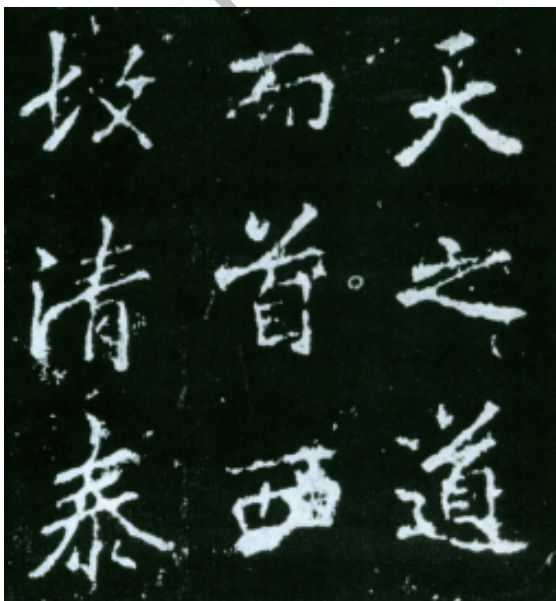 天之道
而首西
清泰